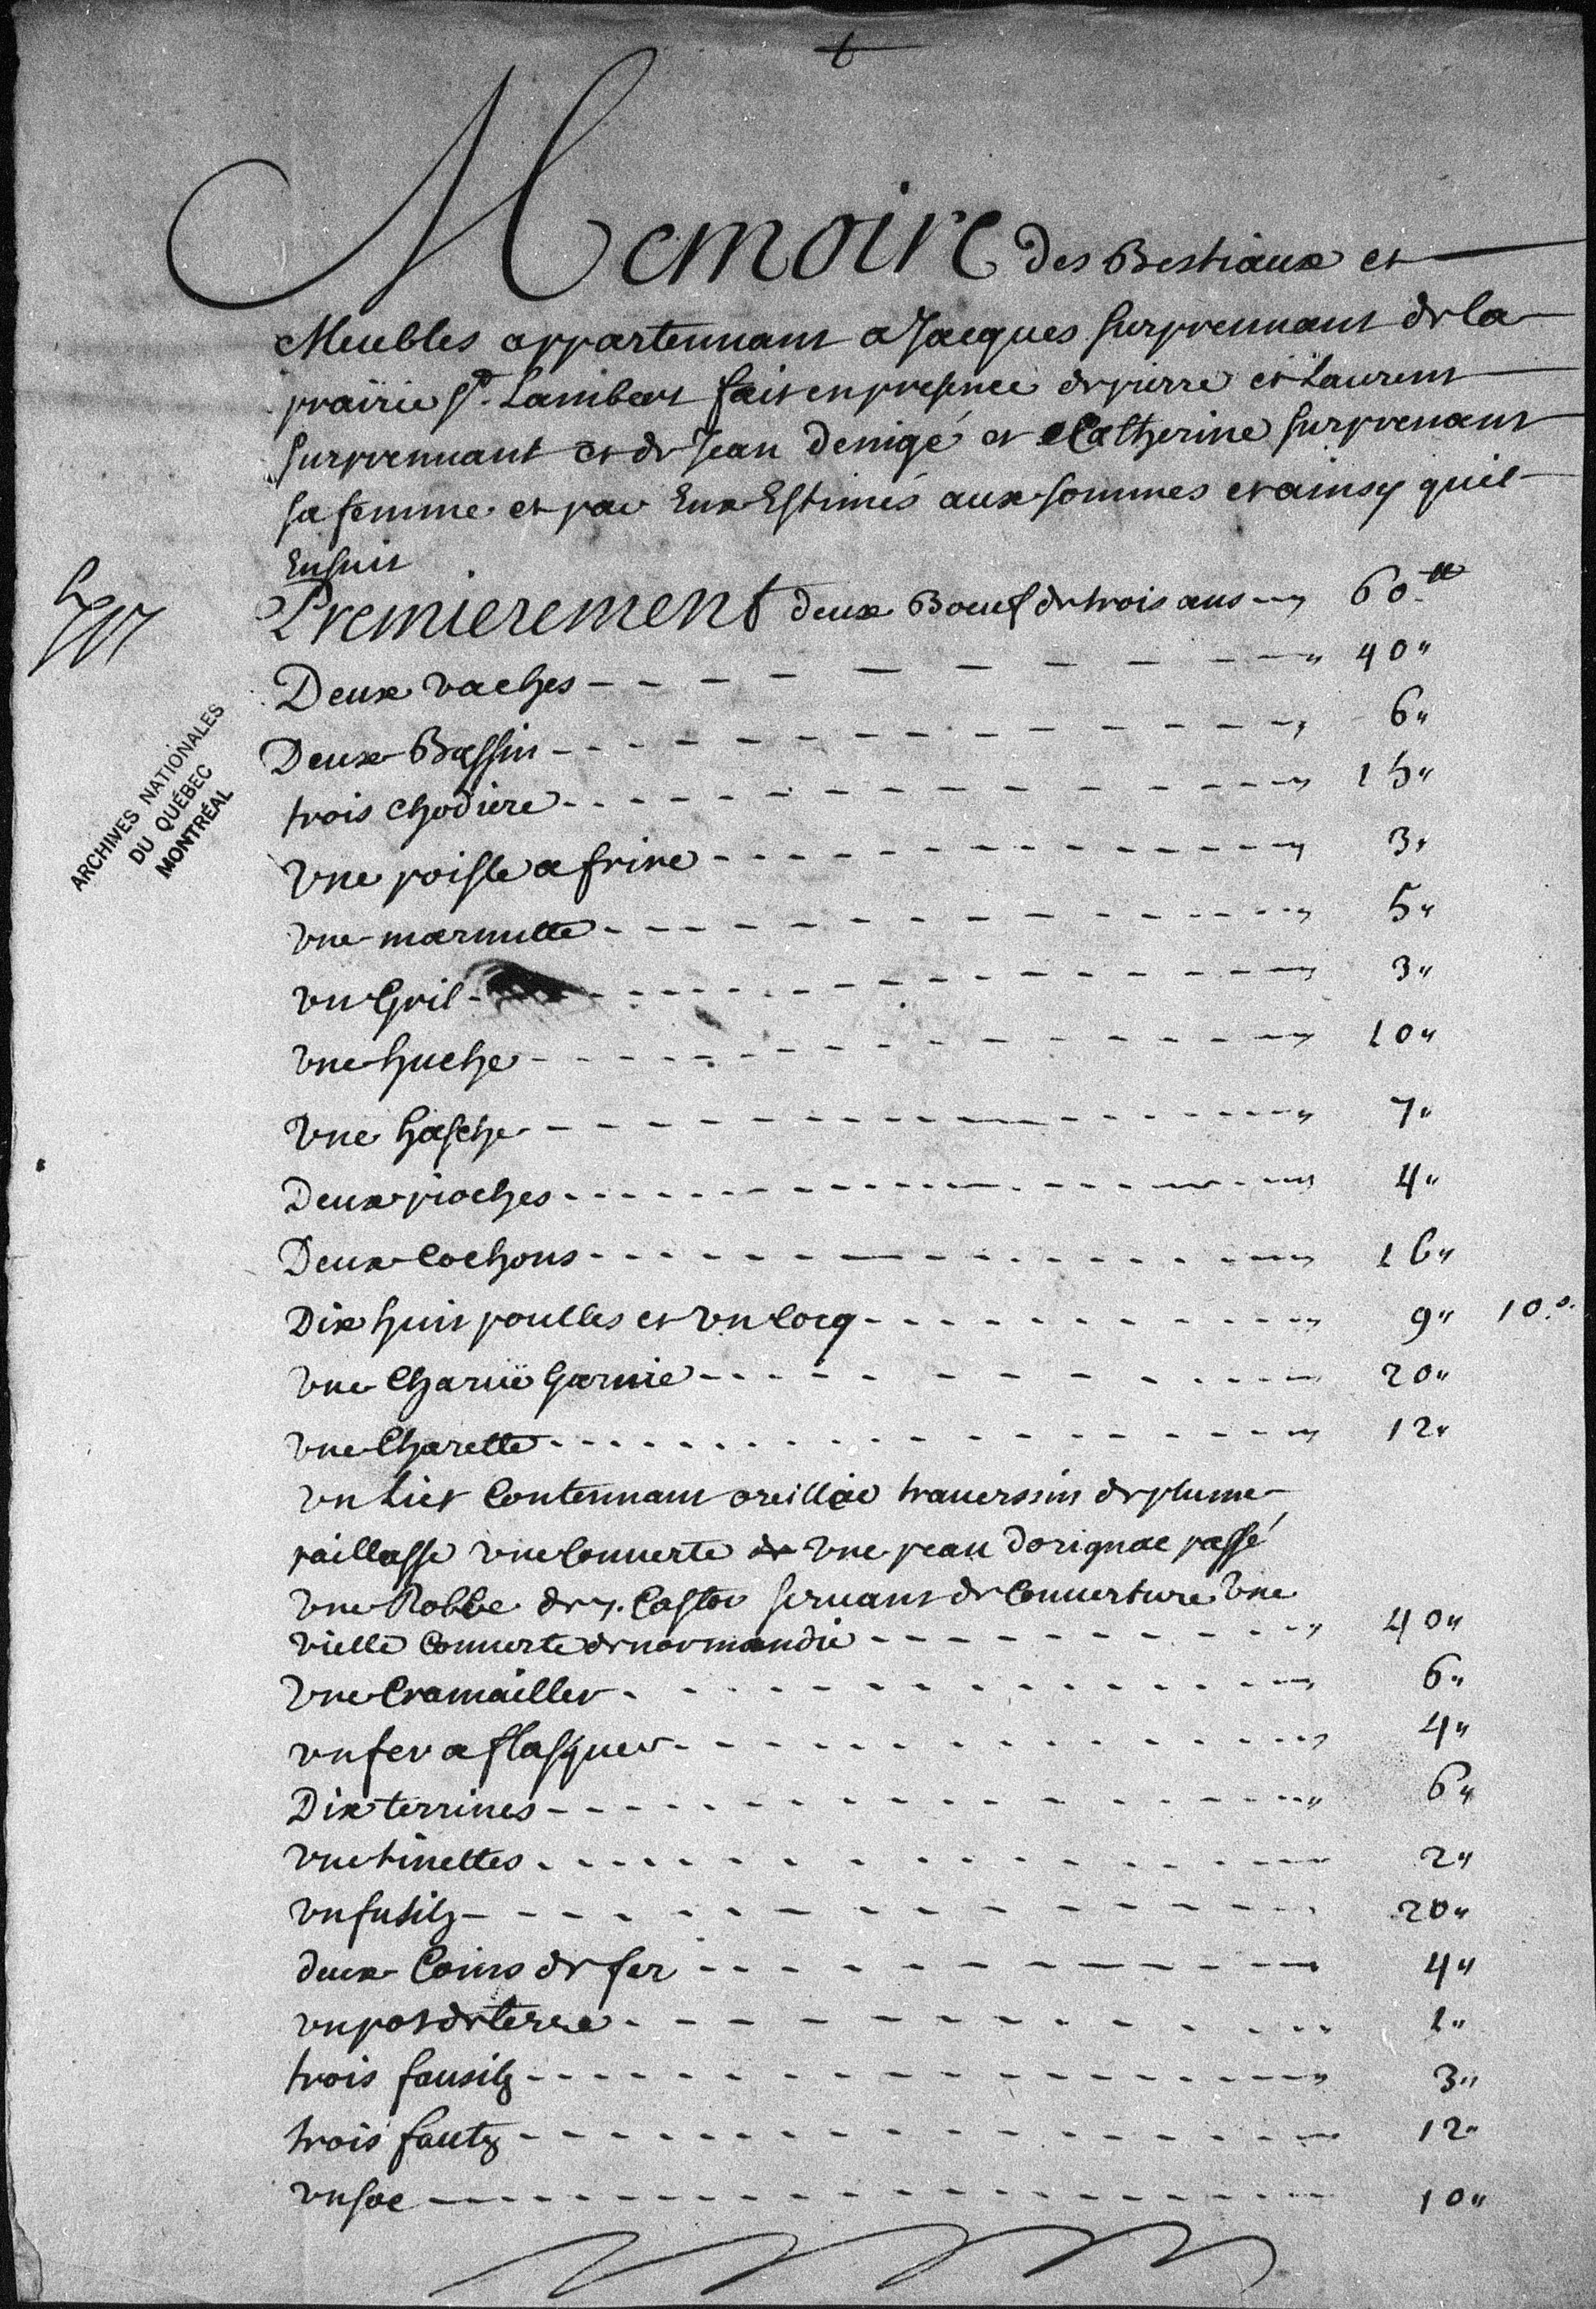 Memoire des Bestiaux et
Meubles appartennant a Jacques Surprennant de la
prairie St. Lambert fait en presence de pierre et Laurent
Surprennant et de Jean Denigé et Catherine Surprenant
sa femme et par Eux Estimés aux sommes et ainsy quil
Ensuit
Premierement deux Boeuf de trois ans 60 tt
Deux vaches 40"
Deux Bassin 6"
trois chodiere 15"
Vne poisle a frire 3"
vne marmitte 5"
vn Gril 3"
vne huche 10"
Vne hasche 7"
Deux pioches 4"
Deux Cochons 16"
Dix huit poulles et vn Cocq 9" 10 s.
vne Charuë Garnie 20"
vne Charette 12"
vn Lict Contennant oreillie trauerssin de plume
paillasse vne Couuerte de vne peau dorignac passé
vne Robbe de Castor seruant de Couuerture Vne
vielle Couuerte de normandie 40"
Vne Cramailler 6"
vn fer a flasquer 4"
Dix terrines 6"
vne tinettes 2"
vn fusilz 20"
deux Coins de fer 4"
vn pot de terre 1"
trois fausilz 3"
trois fautz 12"
vn soc 10"
ARCHIVES NATIONALES
DU QUÉBEC
MONTRÉAL